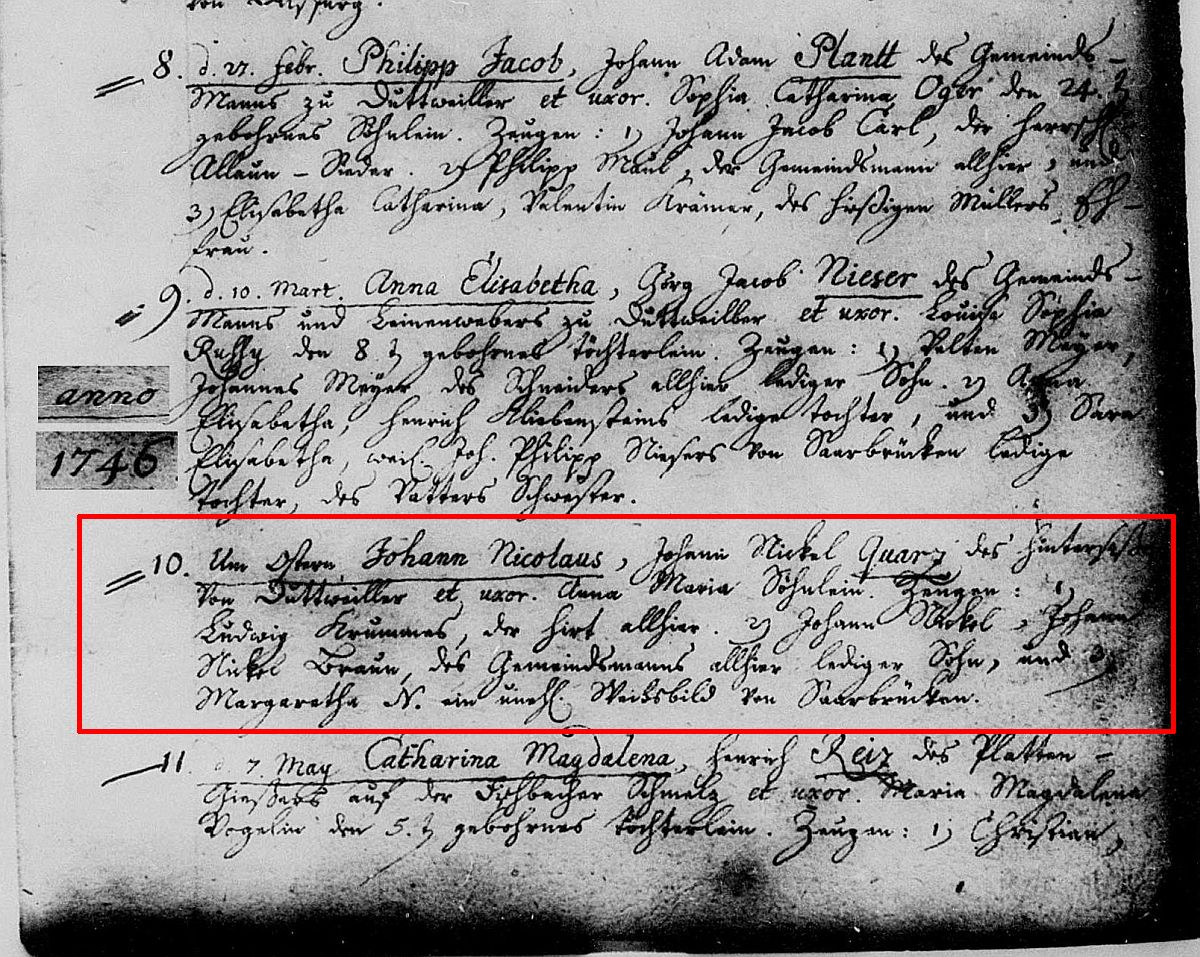 von
8. d. 27. Febr. Philipp Jacob, Johann Adam Plantt des Gemeinds-
Manns zu Duttweiller et uxor. Sophia Catharina Oger den 24. t
gebohrnes Söhnlein. Zeugen: 1) Johann Jacob Carl, der Herrschl
Allaun-Sieder. 2) Philipp Maul, der Gemeindsmann allhier, und
3) Elisabetha Catharina, Valentin Krämer, des hießigen Müllers Eh-
frau.
9. d. 10. Mart. Anna Elisabetha, Görg Jacob Nieser des Gemeinds-
Manns und Leinenwebers zu Duttweiller et uxor. Louise Sophia
den 8 t gebohrnes Töchterlein. Zeugen: 1) Velten Meyer,
anno
Johannes Meyer des Schneiders allhier lediger Sohn. 2) Anna
Elisabetha, Henrich Kliebensteins ledige Tochter, und 3) Sara
1746
Elisabetha, weil. Joh. Philipp Niesers von Saarbrücken ledige
Tochter, des Vatters Schwester.
10. Um Ostern Johann Nicolaus, Johann Nickel Quarz des Hintersaß
von Duttweiller et uxor. Anna Maria Söhnlein. Zeugen: 1)
Ludwig Krummes, der Hirt allhier. 2) Johann Nickel, Johann
Nickel Braun, des Gemeindsmanns allhier lediger Sohn, und 3)
Margaretha N. ein unehl Weibsbild von Saarbrücken.
11. d 7. May Catharina Magdalena, Henrich Reiz des Platten-
Gießers auf der Fischbacher Schmelz et uxor. Maria Magdalena
Vogelin den 5. t gebohrnes Töchterlein. Zeugen: 1) Christian,